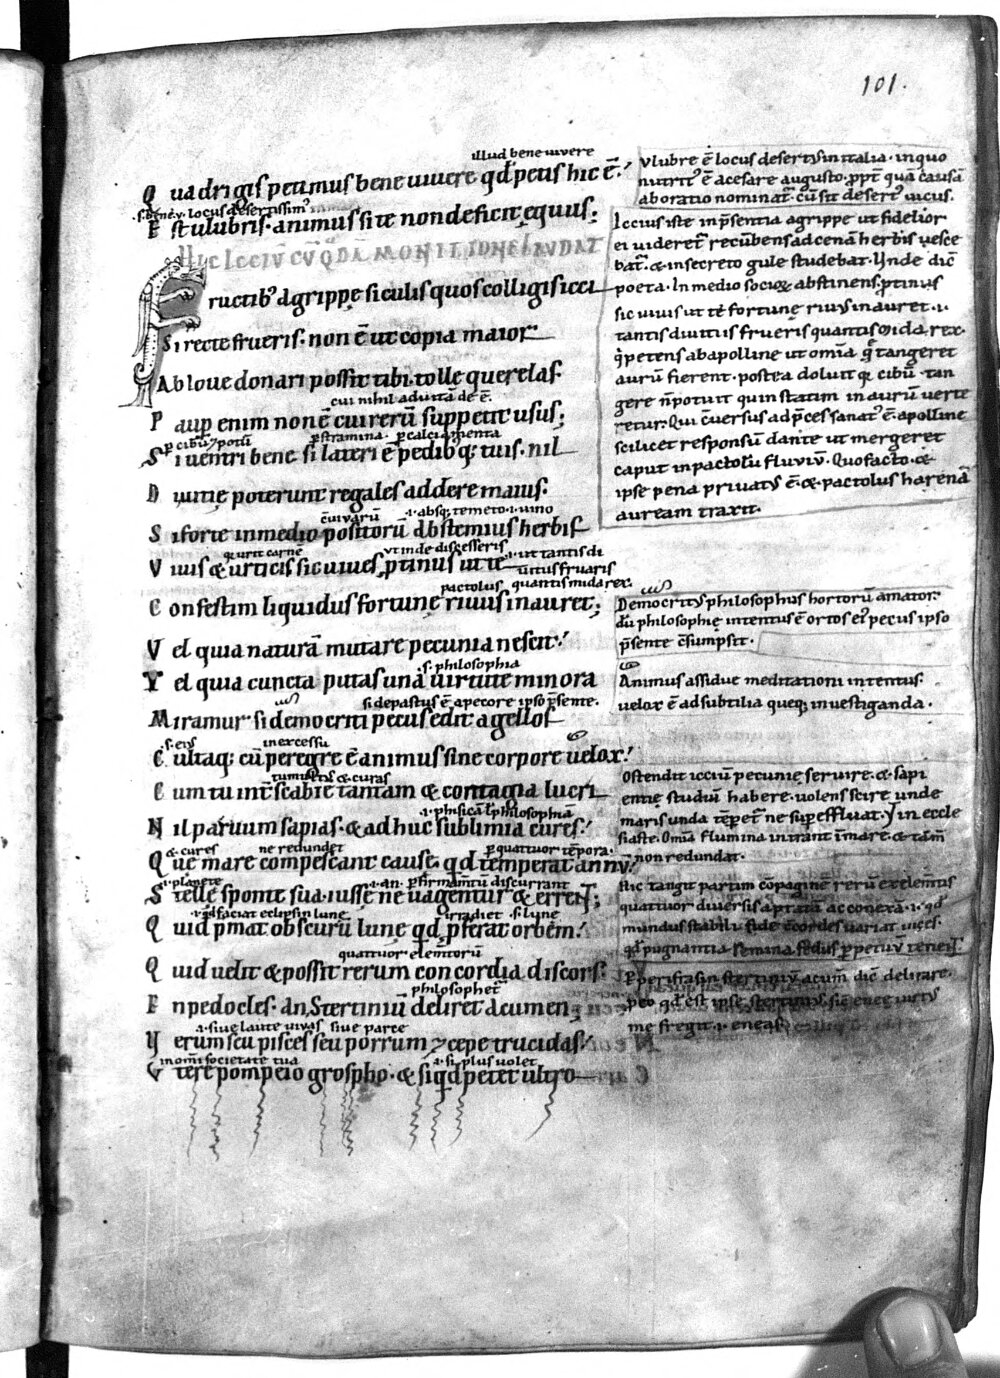 101.
illud bene uiuere
Quadrigis petimus bene uiuere qđ petis hic ē.
.s. bene ụ. locus desertissimꝰ
Est ulubris. animus si te non deficit equus;
HIC ICCIŪ CV̄ QDĀ MONITIONE LAVDAT
Fructibꝰ Agrippę siculis quos colligis icci
Si recte frueris. non ē ut copia maior
Ab Ioue donari possit tibi. tolle querelas.
cui nihil ad uitā de ē.
Pauper enim non ē cui rerū suppetit usus;
p cibū ⁊ potū p stramina. p calciamenta
Si uentri bene. si lateri ē pedibq; tuis. nil
Diuitię poterunt regales addere maius.
ciuiarū .i. absq; temeto .i. uino
Si forte in medio positorū Abstemius herbis
ut inde discesseris .i. ut tantis di
Viuis & urticis sic uiues ptinus ut te
uitiis fruaris
pactolus quantis mida rex.
Confestim liquidus fortunę riuus inauret;
Vel quia naturā mutare pecunia nescit.
.s. philosophia
Vel quia cuncta putas unā uirtute minora
si depastus ē a pecore ipso p̄sente.
Miramur si democriti pecus edit agellos
.s. eiꝰ in excessu
Cultaq; cū peregre ē animus sine corpore uelox.
& curas
Cum tu int̄ scabiē tantam & contagia lucri
.i. phisicā ł philosophiā
Nil paruum sapias. & adhuc sublimia cures.
& cures ne redundet p quatuor tēpora.
Quę mare compescant causę. qđ temperat annū.
.i. planetę .i. an. p firmamtū discurrant
Stellę sponte sua. iussę ne uagentur & errent;
.i. qđ faciat eclipsin lunę irradiet .s. lunę
Quid pmat obscurū lunę qđ pferat orbem.
quattuor elemtorū
Quid uelit & possit rerum concordia discors.
philosophet̄
Enpedocles. an Stertiniū deliret Acumen;
.i. siue laute uiuas siue parce
Verum seu pisces seu porrum ⁊ cepe trucidas.
societate tua .i. si plus uolet
Vtere pompeio grospho. & si qđ petet ultro
Vlubre ē locus desertꝰ in italia. in quo
nutritꝰ ē a cesare augusto. ppt̄ quā causā
ab oratio nominat̄. cū sit desertꝰ uicus.
Iccius iste in p̄sentia agrippę ut fidelior
ei uideret̄ recūbens ad cenā herbis uesce
bat̄. & in secreto gule studebat. Unde dic̄
poeta. In medio socioꝝ abstinens. ptinus
sic uiuis ut te fortune riuꝰ inauret. .i.
tantis diuitiis frueris quantis mida rex.
q̇ petens ab apolline ut omīa q̄ tangeret
aurū fierent. postea doluit qꝫ cibū tan
gere n̄ potuit quin statim in aurū uerte
retur. Qui c̄uersus ad p̄ces sanatꝰ ē. apolline
scilicet responsū dante ut mergeret
caput in pactolū fluuiū. Quo facto. &
ipse pena priuatꝰ ē. & pactolus harenā
auream traxit.
Democritꝰ philosophus hortorū amator.
dū philosophię intentus ē ortos eiꝰ pecus ipso
p̄sente c̄sumpsit.
Animus assidue meditationi intentus.
uelox ē ad subtilia queq; inuestiganda.
Ostendit icciū pecunię seruire. & sapi
entię studiū habere. uolens scire unde
maris unda tēperet̄ ne sup effluat. Vn̄ in eccle
siaste. Omīa flumina intrant in mare. & tam̄
non redundat.
Hic tangit partim cōpaginē rerū ex elem̄tis
quattuor diuersis aptatā ac conexā. .i. qđ
mundus stabili fide c̄cordes uariat uices.
qđ pugnantia semina fędus ppetuū tenent.
P perifrasin stertiniū acum̄ dic̄ delirare.
p eo qđ est ipse stertinius. sic eneę uirtꝰ
me fregit .i. eneas.